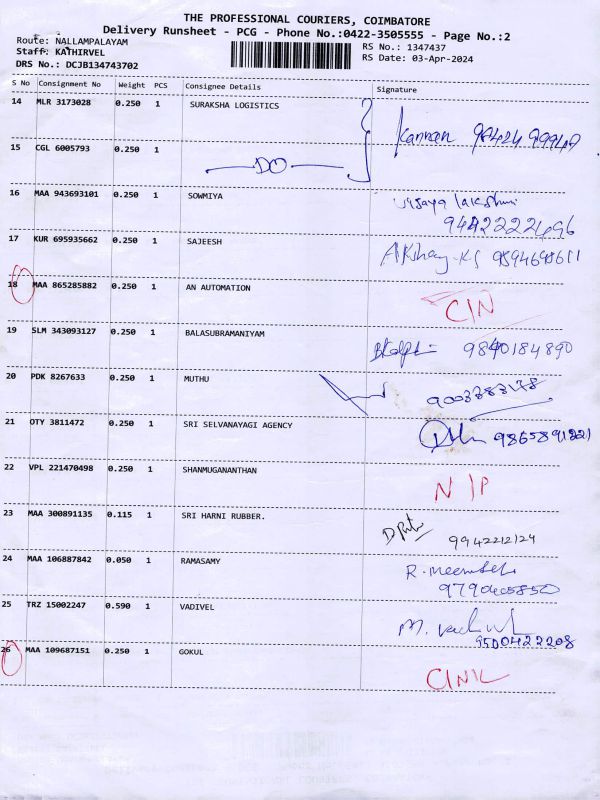 THE PROFESSIONAL COURIERS, COIMBATORE
Delivery Runsheet - PCG - Phone No.:0422-3505555 - Page No.:2
Route: NALLAMPALAYAM
Staff: KATHIRVEL
DRS No.: DCJB134743702
RS No.: 1347437
RS Date: 03-Apr-2024
S No Consignment No Weight PCS Consignee Details Signature
14 MLR 3173028 0.250 1 SURAKSHA LOGISTICS
Kannan
15 CGL 6005793 0.250 1
DO
16 MAA 943693101 0.250 1 SOWMIYA
Vijaya lakshmi
9442222496
17 KUR 695935662 0.250 1 SAJEESH
Akshay.KS
18 MAA 865285882 0.250 1 AN AUTOMATION
C/N
19 SLM 343093127 0.250 1 BALASUBRAMANIYAM
9840184890
20 PDK 8267633 0.250 1 MUTHU
9003383178
21 OTY 3811472 0.250 1 SRI SELVANAYAGI AGENCY
22 VPL 221470498 0.250 1 SHANMUGANANTHAN
N/P
23 MAA 300891135 0.115 1 SRI HARNI RUBBER.
9942212124
24 MAA 106887842 0.050 1 RAMASAMY
R.
9790405850
25 TRZ 15002247 0.590 1 VADIVEL
M.
9500422208
26 MAA 109687151 0.250 1 GOKUL